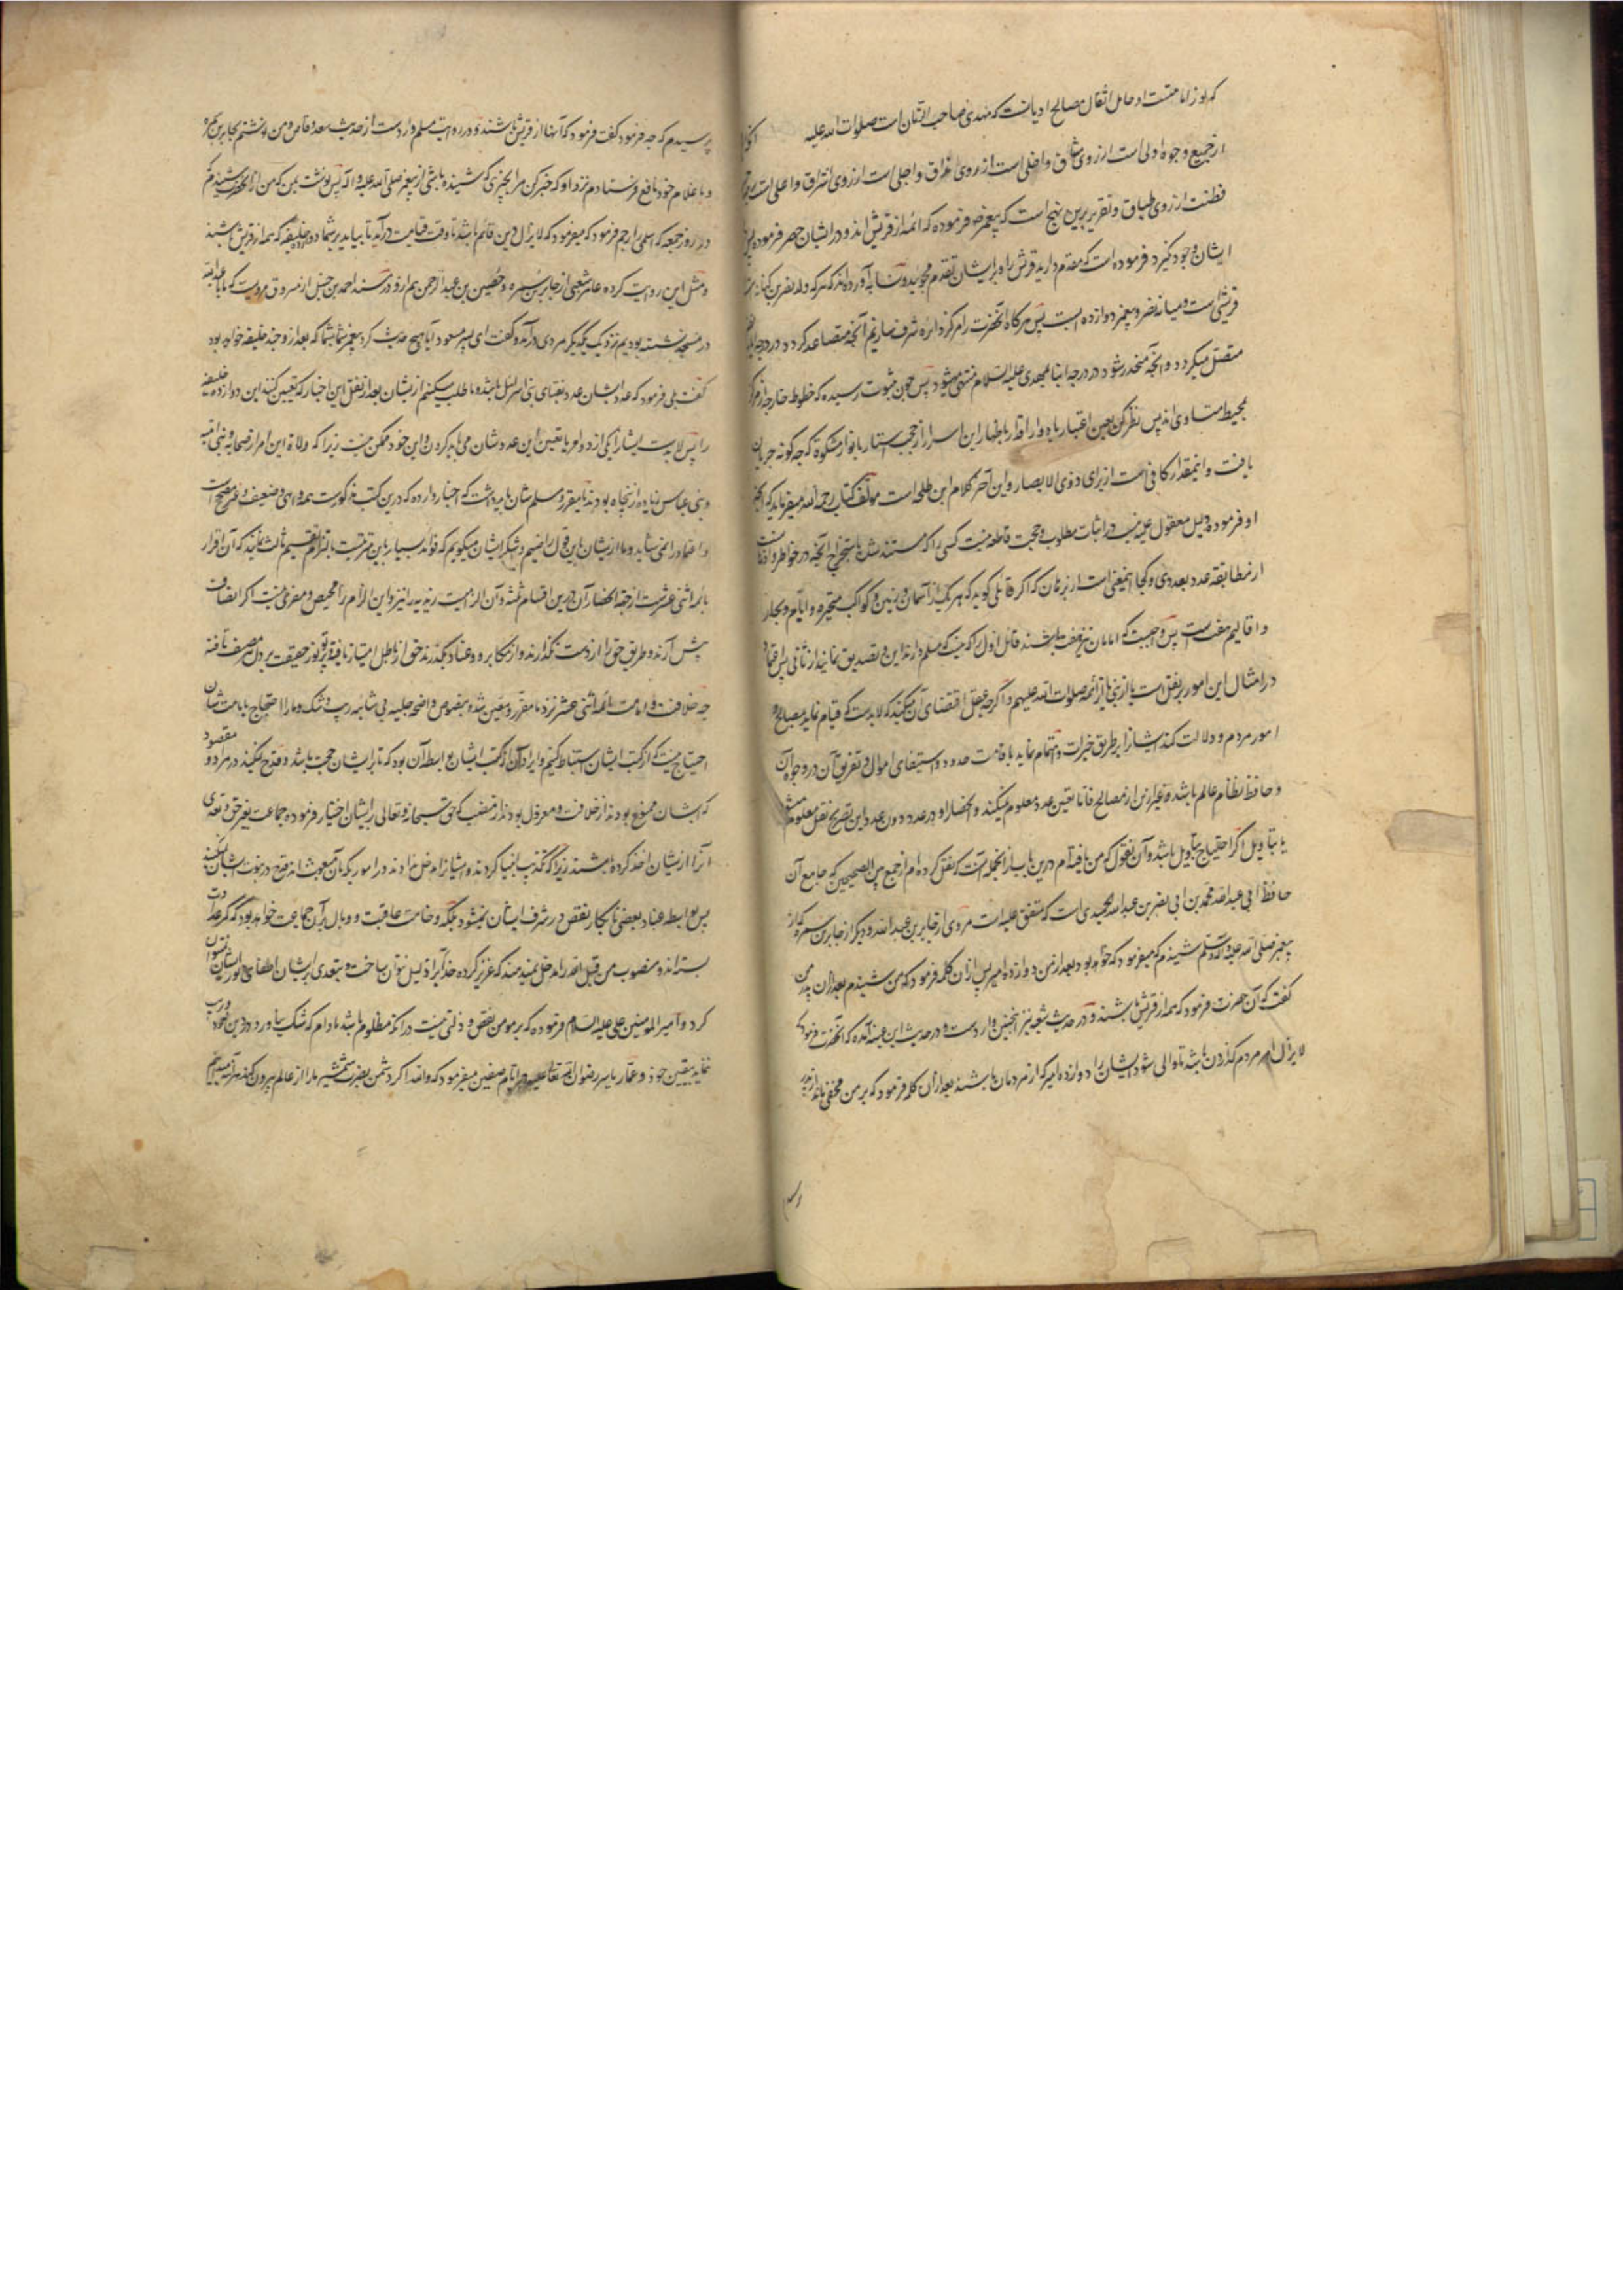 که نور امامتست او حامل اثقال مصالح ادیانست که مهدی صاحب الزمان است صلوات الله علیه
از جمیع وجوه اولی است از روی مشاق و احلی است از روی مذاق و اجلی است از روی اشراق و اعلی است
فطنت از روی طباق و تقریر برین نهج است که پیغمبر فرموده که ائمه از قریش اند و در ایشان حصر فرموده
ایشان وجود نگیرد و فرموده است که مقدم دارید قریش را و بر ایشان تقدم مجویید و نسابه آورده اند که هر که ولد نضر بن کنانه
قریشی است و میانه نضر و پیغمبر دوازده اب است پس هرگاه آنحضرت را مرکز دایره شرف سازیم آنچه متصاعد گردد در درجه
متصل میگردد و آنچه منحدر شود در درجه ابنا بمهدی علیه السلام منتهی میشود پس چون بثبوت رسیده که خطوط خارجه از مرکز
بمحیط متساوی اند پس نظر کن بعین اعتبار باه وار اقدار باظهار این اسرار از حجب استتار بانوار مشکوة که چه گونه جریان
یافت و اینمقدار کافی است از برای ذوی الابصار و این آخر کلام ابن طلحه است مولف کتاب رحمه الله میفرماید که آنچه
او فرموده دلیل معقول علیه نیست در اثبات مطلوب و حجت قاطعه نیست کسی را که مستند شد باستخراج آنچه در خواطر و اذهان است
از مطابقه عدد بعددی و کجا این معنی است از برهان که اگر قائلی گوید که هر یک از آسمان و زمین و کواکب متحیره و ایام و بحار
و اقالیم هفت است پس واجبست که امامان نیز هفت باشند قائل اول را که نیست که مسلم دارند این و تصدیق نمایند از ثانی پس اعتماد
در امثال این امور بر نقل است یا از نبی یا از ائمه صلوات الله علیهم و اگر چه عقل اقتضای آن میکند که لابدست که قیام نماید بمصالح و
امور مردم و دلالت کند ایشانرا بر طریق خیرات و اهتمام نماید باقامت حدود و استیفای اموال و تفریق آن در وجوه آن
و حافظ نظام عالم باشد و غیر این از مصالح فاما تعیین عدد معلوم نمیکند و انحصار او در عدد دون عدد این بصریح نقل معلوم میشود
یا بتاویل اگر احتیاج بتاویل باشد و آن نقول که من یافته ام درین باب از آنجمله آنست که نقل کرده ام از جمع بین الصحیحین که جامع آن
حافظ ابی عبد الله محمد بن ابی نصر بن عبد الله الحمیدی است که متفق علیه است مروی از جابر بن عبد الله و دیگر از جابر بن سمره که از
پیغمبر صلی الله علیه و آله و سلم شنیدم که میفرمود که خواهد بود بعد از من دوازده امیر پس از آن کلمه فرمود که من نشنیدم بعد از آن پدر من
گفت که آن حضرت فرمود که همه از قریش باشند و در حدیث شعبه نیز اینچنین واردست و در حدیث ابن عیینه آمده که آنحضرت فرمود که
لا یزال امر مردم گذران باشد تا والی شود ایشان را دوازده امیر که از مردمان باشند بعد از آن کلمه فرمود که بر من مخفی ماند از پدر
پرسیدم که چه فرمود گفت فرمود که آنها از قریش باشند و در روایت مسلم واردست از حدیث سعد وقاص و من نوشتم بجابر بن سمره
و با غلام خود نافع فرستادم نزد او که خبر کن مرا بچیزی که شنیده باشی از پیغمبر صلی الله علیه و آله پس نوشت بمن که من از آنحضرت شنیدم
در روز جمعه که اسلمی را رجم فرمود که میفرمود که لا یزال دین قائم باشد تا وقت قیامت درآید تا بیاید بر شما دوازده خلیفه که همه از قریش باشند
و مثل این روایت کرده عامر شعبی از جابر بن سمره و حصین بن عبد الرحمن هم از و در مسند احمد بن حنبل از مسروق مرویست که ما با عبد الله
در مسجد نشسته بودیم نزدیک یکدیگر مردی درآمد و گفت ای پسر مسعود آیا هیچ حدیث کرد پیغمبر شما بشما که بعد از و چند خلیفه خواهد بود
گفت بلی فرمود که عدد ایشان عدد نقبای بنی اسرائیل باشد و ما طلب میکنیم از یشان بعد از نقل این اخبار که تعیین کنند این دوازده خلیفه
را پس لابدست ایشانرا یکی از دو امر یا تعیین این عدد شان می باید کردن و این خود ممکن نیست زیرا که ولاة این امر از صحابه و بنی امیه
و بنی عباس زیاده از پنجاه بودند یا مقر و مسلم شان باید داشت که اخبار وارده که درین کتب مذکورست همه واهی و ضعیف و غیر صحیح است
و اعتماد را نمی شاید و ما از یشان باین قول راضییم و شکر ایشان میگوییم که فواید بسیار باین مترتبست یا التزام قسیم ثالث نمایند که آن اقرار
بائمه اثنی عشرست از جهة انحصار آن درین اقسام ثلثه و آن الزامیست زیدیه را نیز و این الزام را محیص و مفری نیست اگر انصاف
پیش آرند و طریق حق را از دست نگذارند و از مکابره و عناد بگذرند حق از باطل امتیاز یافته پرتو نور حقیقت بر دل منصف تافته
چه خلافت و امامت ائمه اثنی عشر نزد ما مقرر و معین شده بنصوص واضحه جلیه بی شائبه ریب و شک و ما را احتیاج بامامت شان
احتیاج نیست که از کتب ایشان استنباط کنیم و ایراد آن از کتب ایشان بواسطه آن بود که تا بر ایشان حجت باشد و قدح نکنند در مراد و مقصود
که ایشان ممنوع بودند از خلافت و معزول بودند از منصب که حق سبحانه و تعالی برایشان اختیار فرموده جماعت بغیر حق و تعدی
آنرا از یشان اخذ کرده باشند زیرا که تکذیب انبیا کردند و ایشانرا مدخل ندادند در امور یکه بآن مبعوث شدند قدح در نبوت ایشان نکند
پس بواسطه عناد بعضی یا انکار نقص در شرف ایشان نمیشود بلکه وخامت عاقبت و وبال بر آن جماعت خواهد بود که
بستدند و منصوب من قبل الله را مدخل ندهند که عزیز کرده خدا را ذلیل نتوان ساخت و بتعدی بر ایشان اطفای نور ایشان نتوان
کرد و امیر المومنین علی علیه السلام فرموده که بر مومن نقص و ذلتی نیست در آنکه مظلوم باشد مادام که شک نیاورد در دین خود و ریب
نماید بیقین خود و عمار یاسر رضوان الله تعالی علیه در ایام صفین میفرمود که والله اگر دشمن بضرب شمشیر ما را از عالم بیرون کند